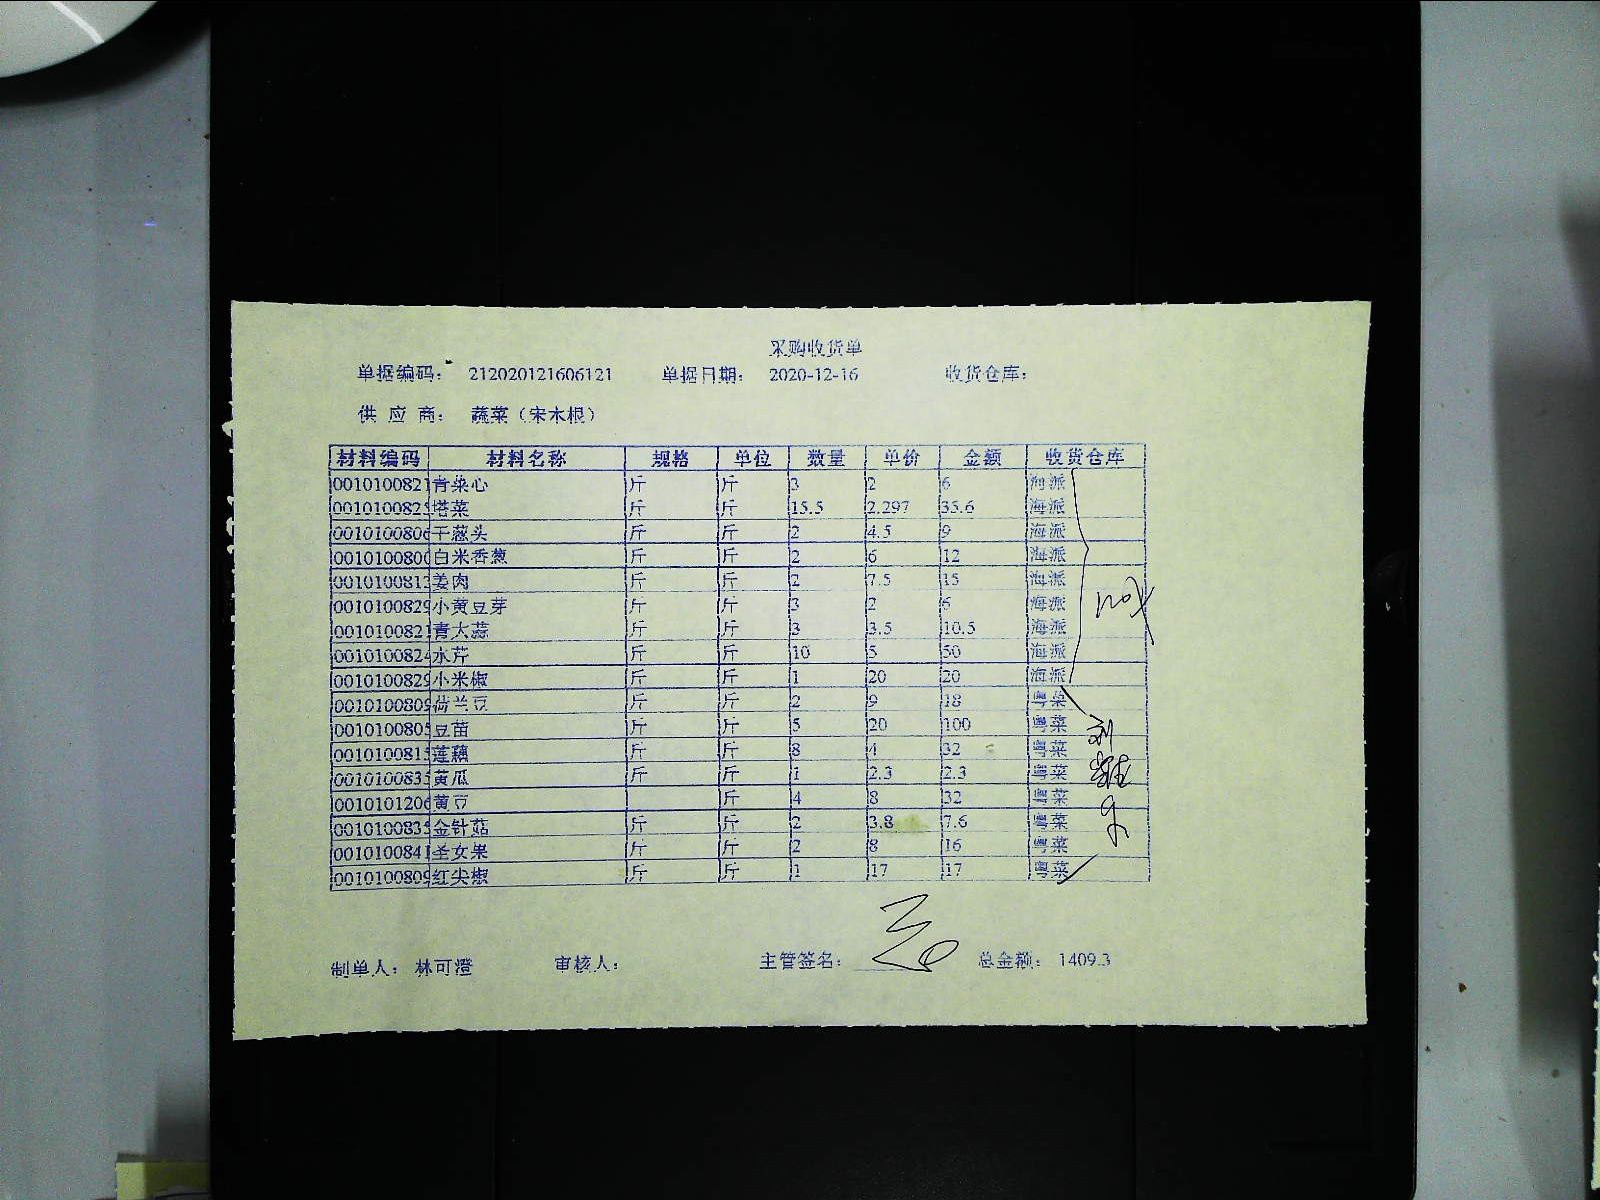 采购收货单
单据编码： 212020121606121 单据日期： 2020-12-16 收货仓库：
供 应 商： 蔬菜（宋木根）
材料编码 材料名称 规格 单位 数量 单价 金额 收货仓库
0010100821 青菜心 斤 斤 3 2 6 海派
0010100825 塔菜 斤 斤 15.5 2.297 35.6 海派
0010100806 干葱头 斤 斤 2 4.5 9 海派
0010100800 白米香葱 斤 斤 2 6 12 海派
0010100813 姜肉 斤 斤 2 7.5 15 海派
0010100829 小黄豆芽 斤 斤 3 2 6 海派
0010100821 青大蒜 斤 斤 3 3.5 10.5 海派
0010100824 水芹 斤 斤 10 5 50 海派
0010100829 小米椒 斤 斤 1 20 20 海派
0010100809 荷兰豆 斤 斤 2 9 18 粤菜
0010100805 豆苗 斤 斤 5 20 100 粤菜
0010100815 莲藕 斤 斤 8 4 32 粤菜
0010100835 黄瓜 斤 斤 1 2.3 2.3 粤菜
0010101206 黄豆 斤 4 8 32 粤菜
0010100835 金针菇 斤 斤 2 3.8 7.6 粤菜
0010100841 圣女果 斤 斤 2 8 16 粤菜
0010100809 红尖椒 斤 斤 1 17 17 粤菜
制单人： 林可澄 审核人： 主管签名： 总金额： 1409.3